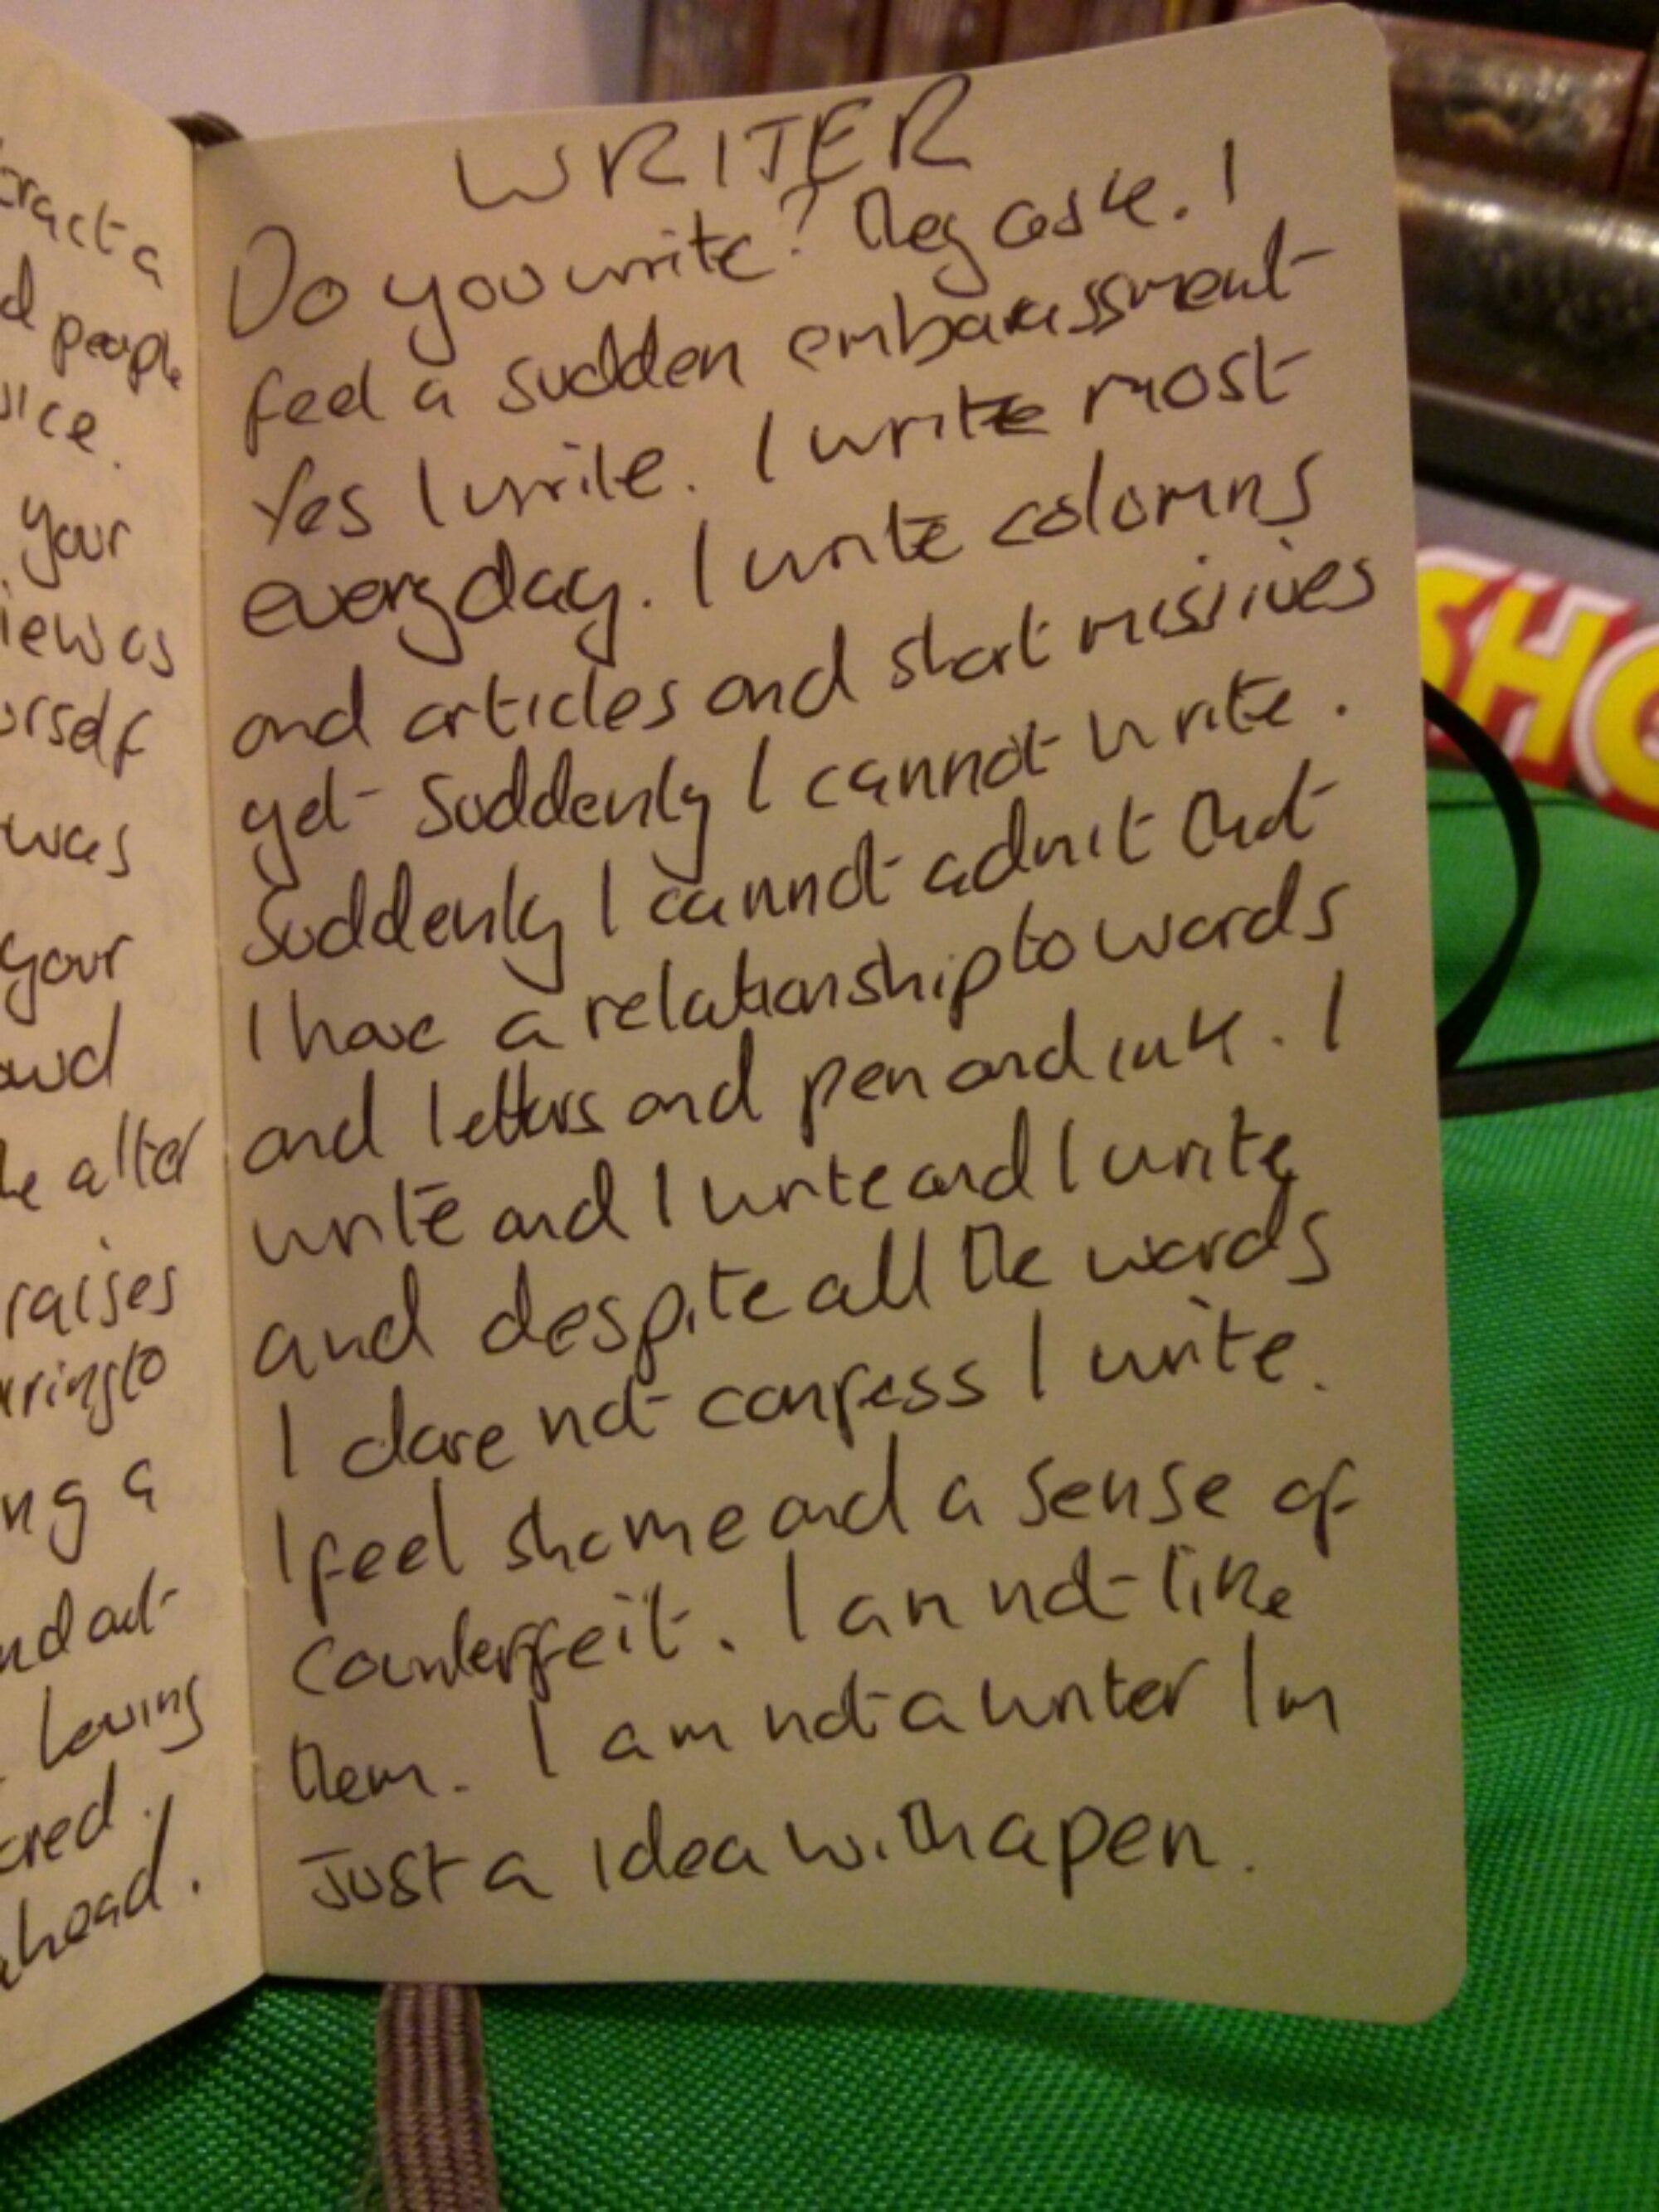 ract a
d people
ice.
your
iew as
rself
was
your
owd
he alter
raises
rring to
ng a
nd act
Loving
cred.
head.
WRITER
Do you write? They ask. I
feel a sudden embarassment
Yes I write. I write most
everyday. I write colomns
and articles and short missives
yet suddenly I cannot write.
Suddenly I cannot admit that
I have a relationship to words
and letters and pen and ink. I
write and I write and I write
and despite all the words
I dare not confess I write.
I feel shame and a sense of
counterfeit. I am not like
them. I am not a writer Im
just a idea with a pen.
SHO